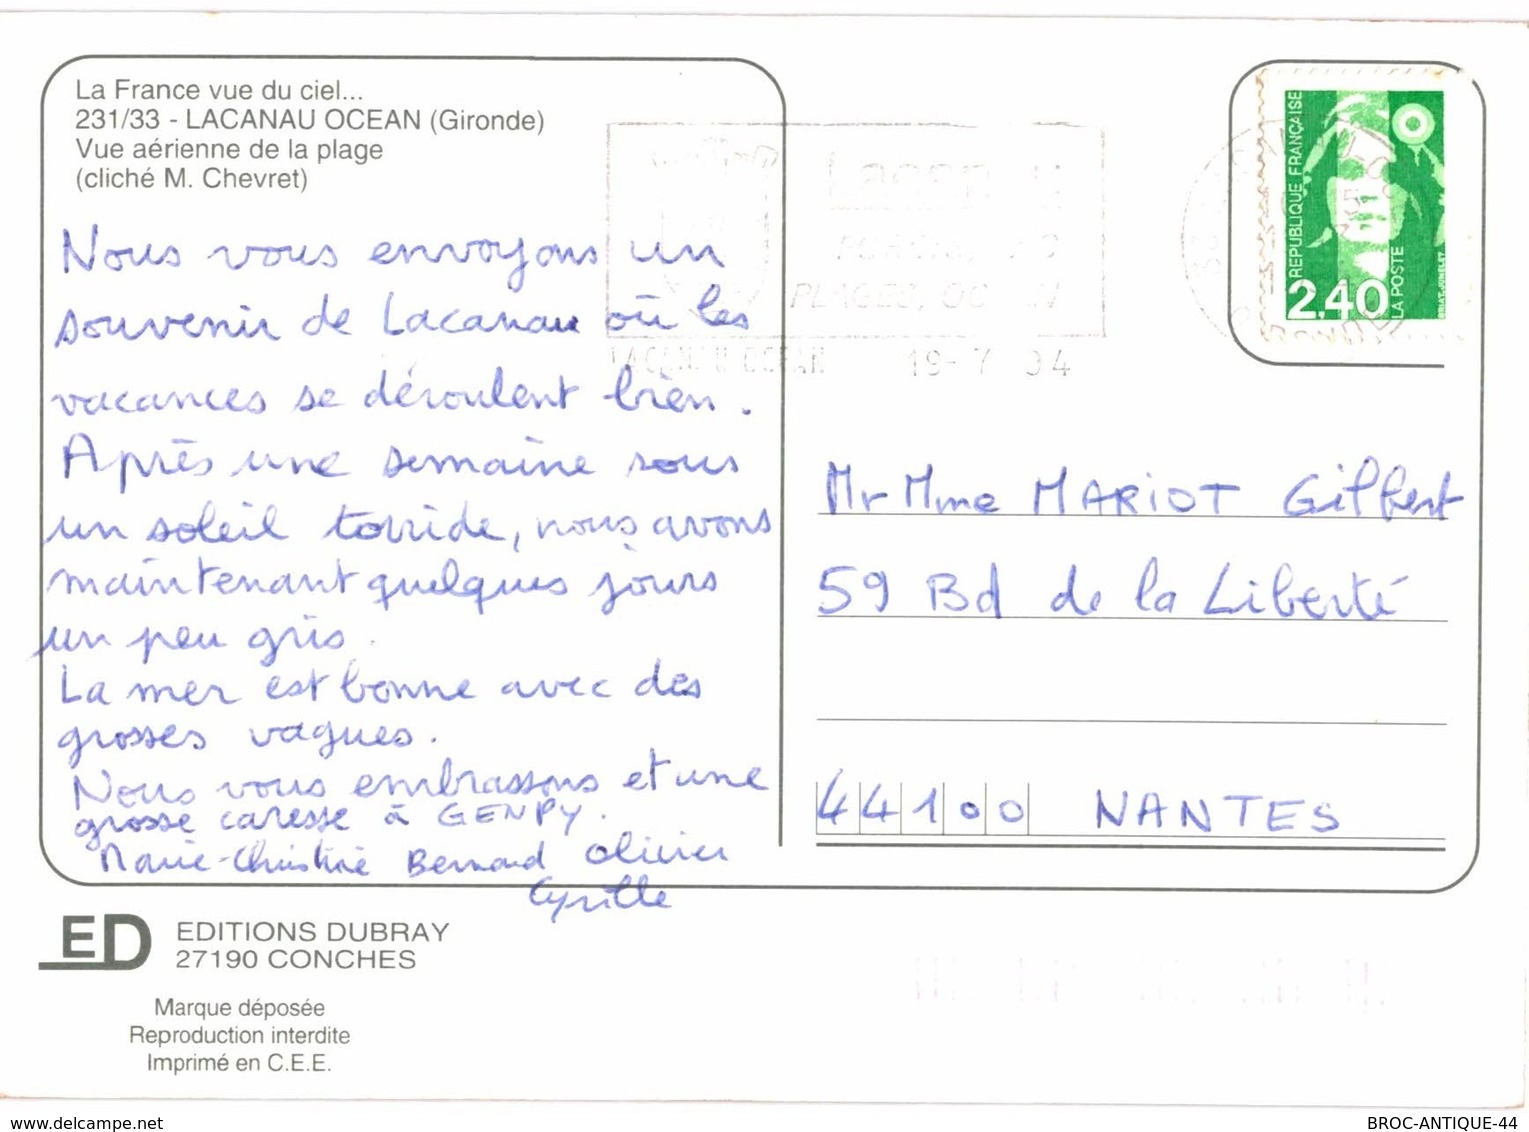 La France vue du ciel...
231/33 - LACANAU OCEAN (Gironde)
Vue aérienne de la plage
(cliché M. Chevret)
Nous vous envoyons un
souvenir de Lacanau où les
vacances se déroulent bien.
Après une semaine sous
un soleil torride, nous avons
maintenant quelques jours
un peu gris.
La mer est bonne avec des
grosses vagues.
Nous vous embrassons et une
grosse caresse à GENPY.
Marie-Christine Bernard Olivier
Cyrille
PLAGES,
LACANAU OCEAN 19-7 94
REPUBLIQUE FRANÇAISE
2,40
LA POSTE
Mr Mme MARIOT Gilbert
59 Bd de la Liberté
44100 NANTES
ED
EDITIONS DUBRAY
27190 CONCHES
Marque déposée
Reproduction interdite
Imprimé en C.E.E.
www.delcampe.net
BROC-ANTIQUE-44